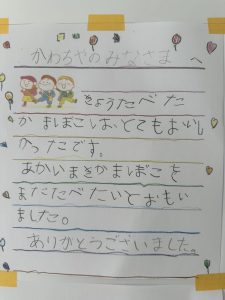 かわちやのみなさま へ
きょうたべた
かまぼこはとてもおいし
かったです。
あかいまきかまぼこを
またたべたいとおもい
ました。
ありがとうございました。